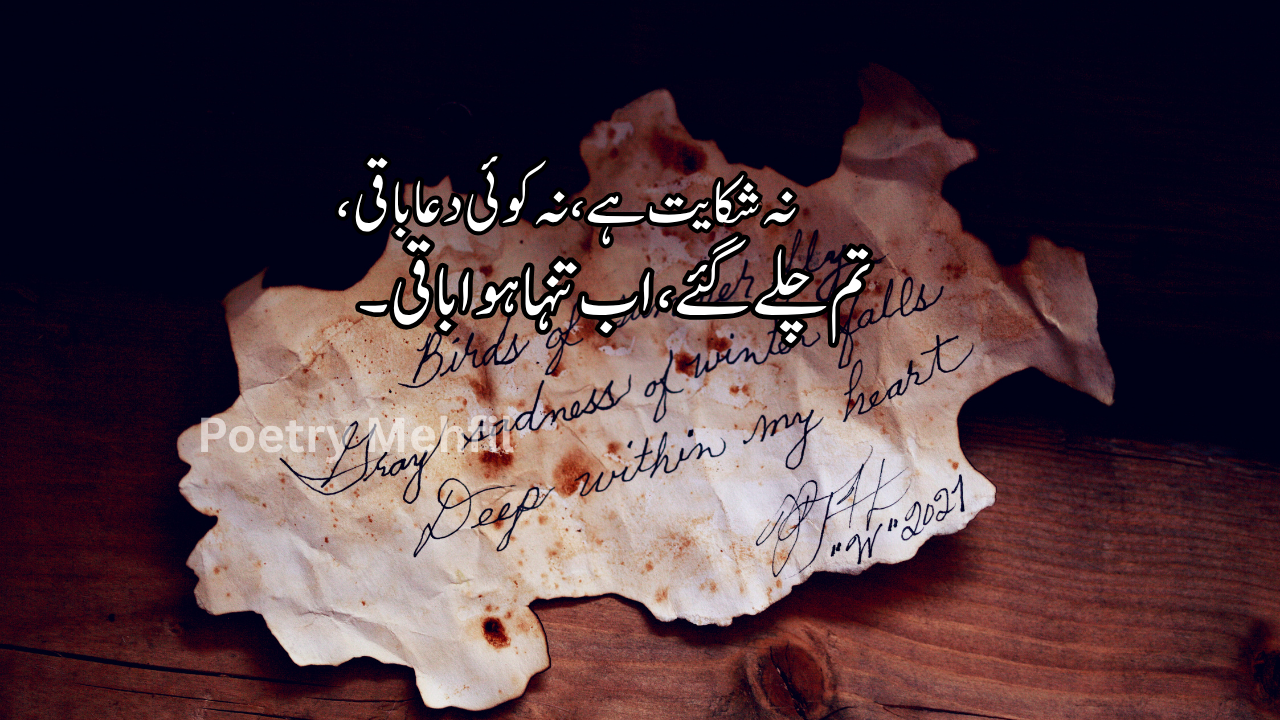 نہ شکایت ہے، نہ کوئی دعا باقی،
تم چلے گئے، اب تنہا ہوا باقی۔
Birds of fly
Gray sadness of winter falls
Deep within my heart
"W" 2021
Poetry Mehfil